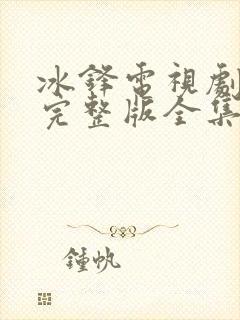 冰鋒電視劇
完整版全集
鍾帆